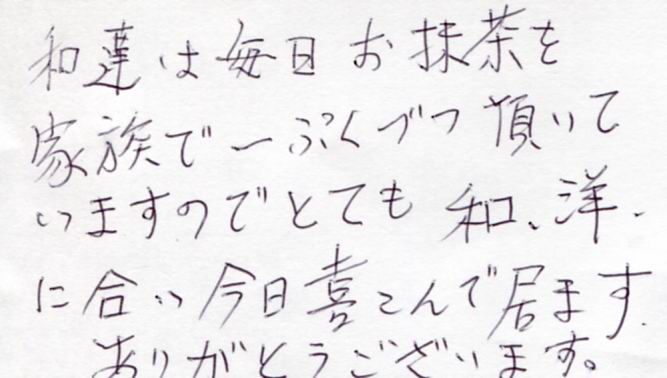 和達は毎日お抹茶を
家族で一ぷくづつ頂いて
いますのでとても和、洋、
に合い今日喜こんで居ます.
ありがとうございます。